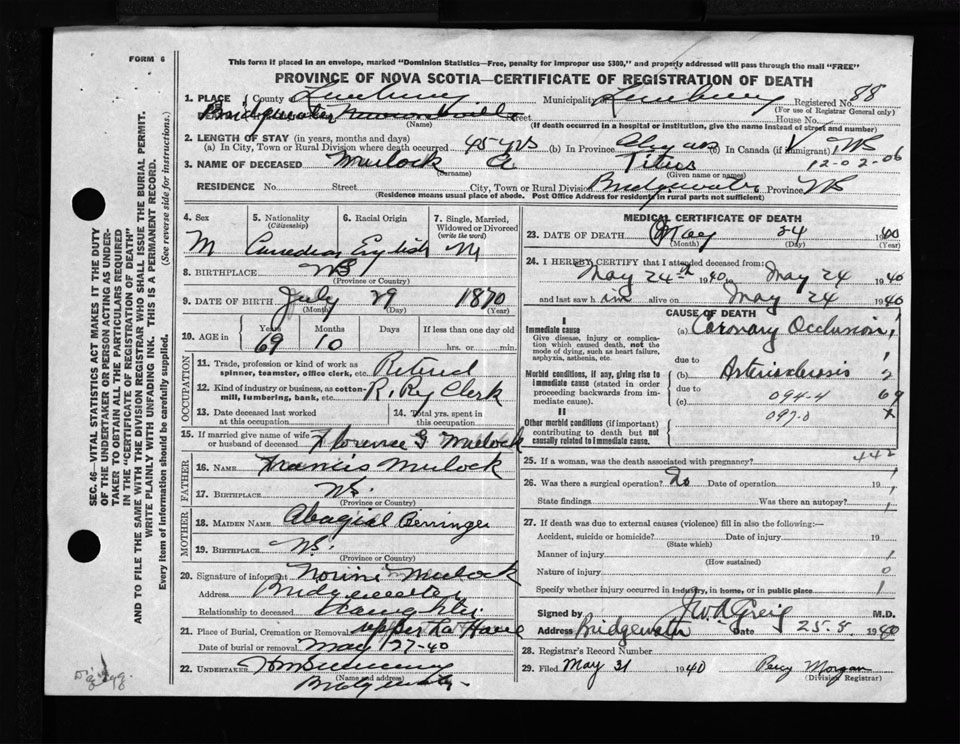 FORM 6
This form if placed in an envelope, marked "Dominion Statistics—Free, penalty for improper use $300," and properly addressed will pass through the mail "FREE"
PROVINCE OF NOVA SCOTIA—CERTIFICATE OF REGISTRATION OF DEATH
1. PLACE County Lunenburg Municipality Lunenburg Registered No. 88
(For use of Registrar General only)
Bridgewater Street House No.
(Name) (If death occurred in a hospital or institution, give the name instead of street and number)
2. LENGTH OF STAY (in years, months and days)
(a) In City, Town or Rural Division where death occurred 45-yrs (b) In Province (c) In Canada (if immigrant)
12-02-06
3. NAME OF DECEASED Mulock Titus
(Surname) (Given name or names)
RESIDENCE No. Street City, Town or Rural Division Bridgewater Province NS
(Residence means usual place of abode. Post Office Address for residents in rural parts not sufficient)
4. Sex M
5. Nationality (Citizenship) Canadian
6. Racial Origin English
7. Single, Married, Widowed or Divorced (write the word) M
8. BIRTHPLACE NS
(Province or Country)
9. DATE OF BIRTH July 29 1870
(Month) (Day) (Year)
10. AGE in Years Months Days If less than one day old
69 10 hrs. or min.
OCCUPATION
11. Trade, profession or kind of work as spinner, teamster, office clerk, etc. Retired
12. Kind of industry or business, as cotton-mill, lumbering, bank, etc. R. Ry Clerk
13. Date deceased last worked at this occupation
14. Total yrs. spent in this occupation
15. If married give name of wife or husband of deceased Florence G Mulock
FATHER
16. NAME Francis Mulock
17. BIRTHPLACE NS.
(Province or Country)
MOTHER
18. MAIDEN NAME
19. BIRTHPLACE NS.
(Province or Country)
20. Signature of informant Mulock
Address Bridgewater
Relationship to deceased Daughter
21. Place of Burial, Cremation or Removal upper La Have
Date of burial or removal May 27-40
22. UNDERTAKER
(Name and address)
Bridgewater
MEDICAL CERTIFICATE OF DEATH
23. DATE OF DEATH May 24 1940
(Month) (Day) (Year)
24. I HEREBY CERTIFY that I attended deceased from:
May 24th 1940 May 24 1940
and last saw h im alive on May 24 1940
CAUSE OF DEATH
I
Immediate cause
Give disease, injury or complication which caused death, not the mode of dying, such as heart failure, asphyxia, asthenia, etc.
(a) Coronary Occlusion
due to
Morbid conditions, if any, giving rise to immediate cause (stated in order proceeding backwards from immediate cause).
(b) Arteriosclerosis
due to
(c) 094-4
097-0
II
Other morbid conditions (if important) contributing to death but not causally related to immediate cause.
25. If a woman, was the death associated with pregnancy?
26. Was there a surgical operation? No Date of operation 19
State findings Was there an autopsy?
27. If death was due to external causes (violence) fill in also the following:—
Accident, suicide or homicide? Date of injury 19
(State which)
Manner of injury
(How sustained)
Nature of injury
Specify whether injury occurred in industry, in home, or in public place
Signed by J.W.A Greig M.D.
Address Bridgewater Date 25-5 1940
28. Registrar's Record Number
29. Filed May 31 1940 Percy Morgan
(Division Registrar)
SEC. 46—VITAL STATISTICS ACT MAKES IT THE DUTY
OF THE UNDERTAKER OR PERSON ACTING AS UNDER-
TAKER TO OBTAIN ALL THE PARTICULARS REQUIRED
IN THE "CERTIFICATE OF REGISTRATION OF DEATH"
AND TO FILE THE SAME WITH THE DIVISION REGISTRAR WHO SHALL ISSUE THE BURIAL PERMIT.
WRITE PLAINLY WITH UNFADING INK. THIS IS A PERMANENT RECORD.
Every item of information should be carefully supplied. (See reverse side for instructions.)